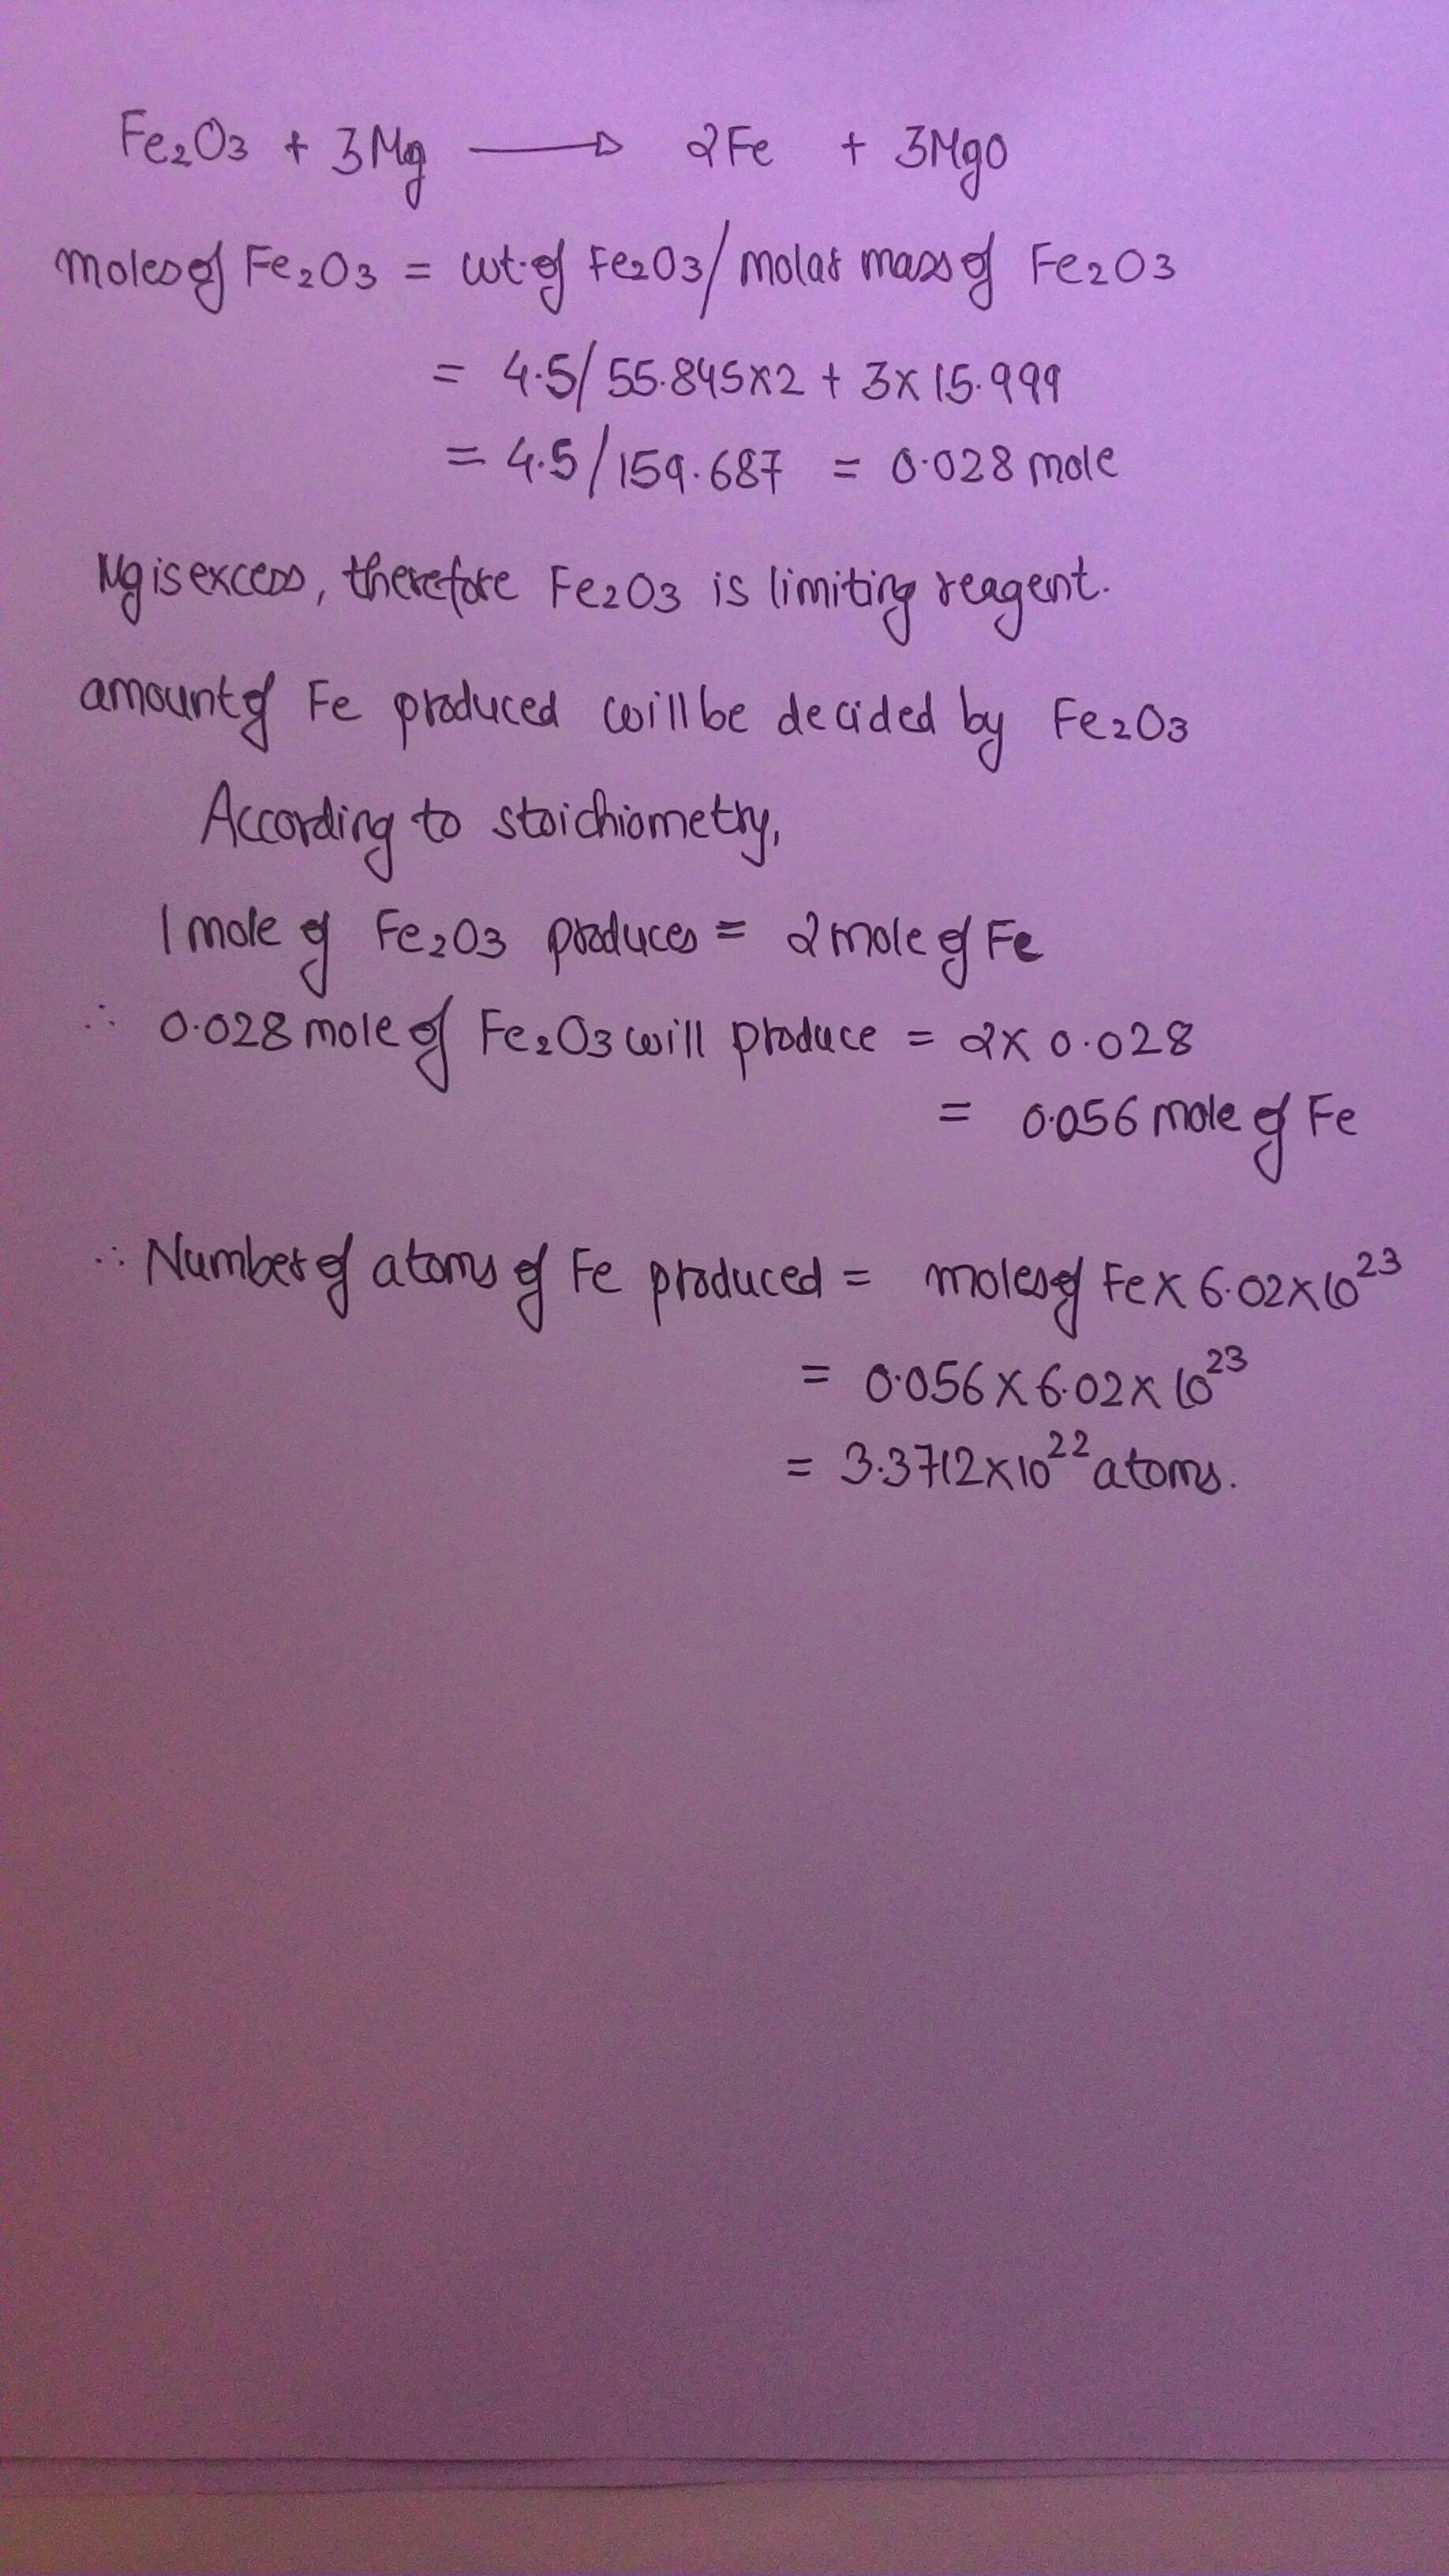 Fe2O3 + 3Mg → 2Fe + 3MgO
moles of Fe2O3 = wt. of Fe2O3/molar mass of Fe2O3
= 4.5/55.845×2 + 3×15.999
= 4.5/159.687 = 0.028 mole
Mg is excess, therefore Fe2O3 is limiting reagent.
amount of Fe produced will be decided by Fe2O3
According to stoichiometry,
1 mole of Fe2O3 produces = 2 mole of Fe
∴ 0.028 mole of Fe2O3 will produce = 2×0.028
= 0.056 mole of Fe
∴ Number of atoms of Fe produced = moles of Fe×6.02×10^23
= 0.056×6.02×10^23
= 3.3712×10^22 atoms.